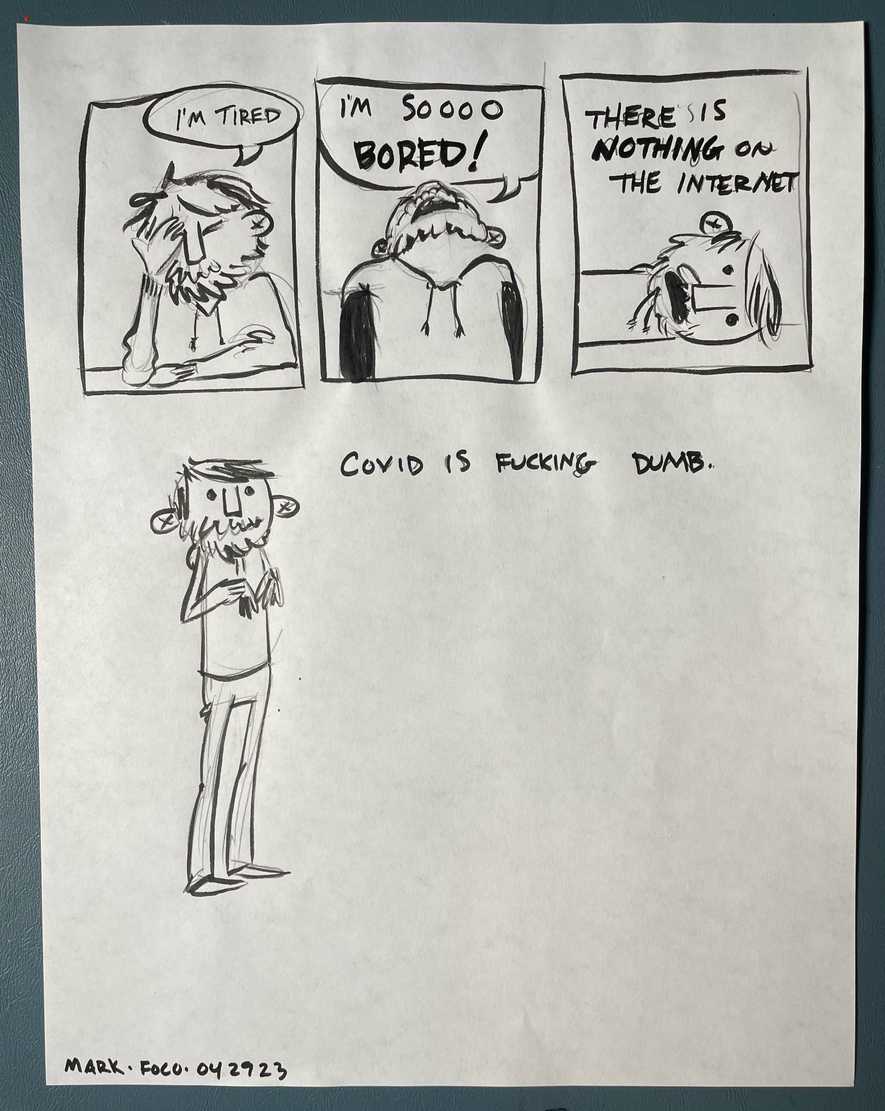 I'M TIRED
I'M SOOOO
BORED!
THERE IS
NOTHING ON
THE INTERNET
COVID IS FUCKING DUMB.
MARK. FOCO. 042923